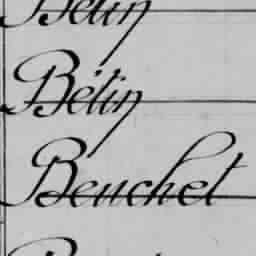 Bélin
Bélin
Beuchet